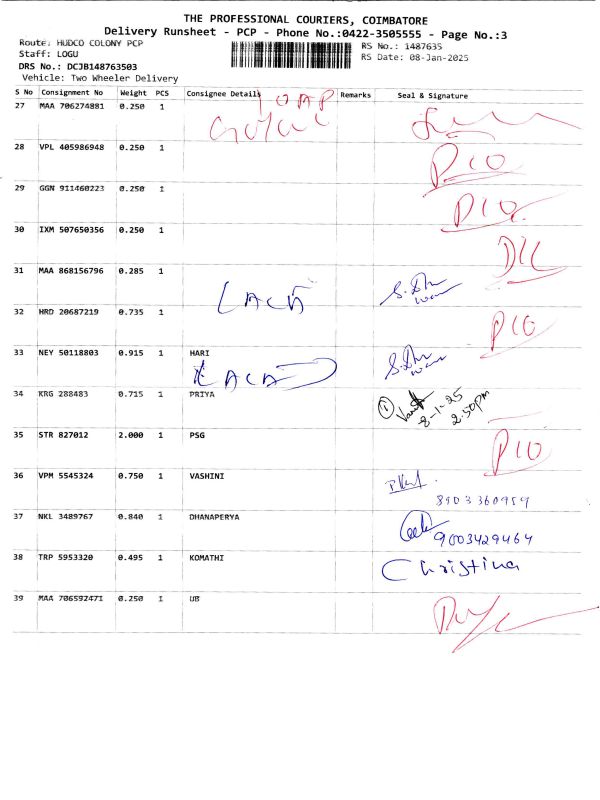 THE PROFESSIONAL COURIERS, COIMBATORE
Delivery Runsheet - PCP - Phone No.:0422-3505555 - Page No.:3
Route: HUDCO COLONY PCP
RS No.: 1487635
Staff: LOGU
RS Date: 08-Jan-2025
DRS No.: DCJB148763503
Vehicle: Two Wheeler Delivery
S No Consignment No Weight PCS Consignee Details Remarks Seal & Signature
27 MAA 706274881 0.250 1
28 VPL 405986948 0.250 1 P10
29 GGN 911460223 0.250 1 P10
30 IXM 507650356 0.250 1
31 MAA 868156796 0.285 1
32 HRD 20687219 0.735 1 P10
33 NEY 50118803 0.915 1 HARI
34 KRG 288483 0.715 1 PRIYA
8-1-25
2.50pm
35 STR 827012 2.000 1 PSG P10
36 VPM 5545324 0.750 1 VASHINI
37 NKL 3489767 0.840 1 DHANAPERYA
9003429464
38 TRP 5953320 0.495 1 KOMATHI Christina
39 MAA 706592471 0.250 1 UB